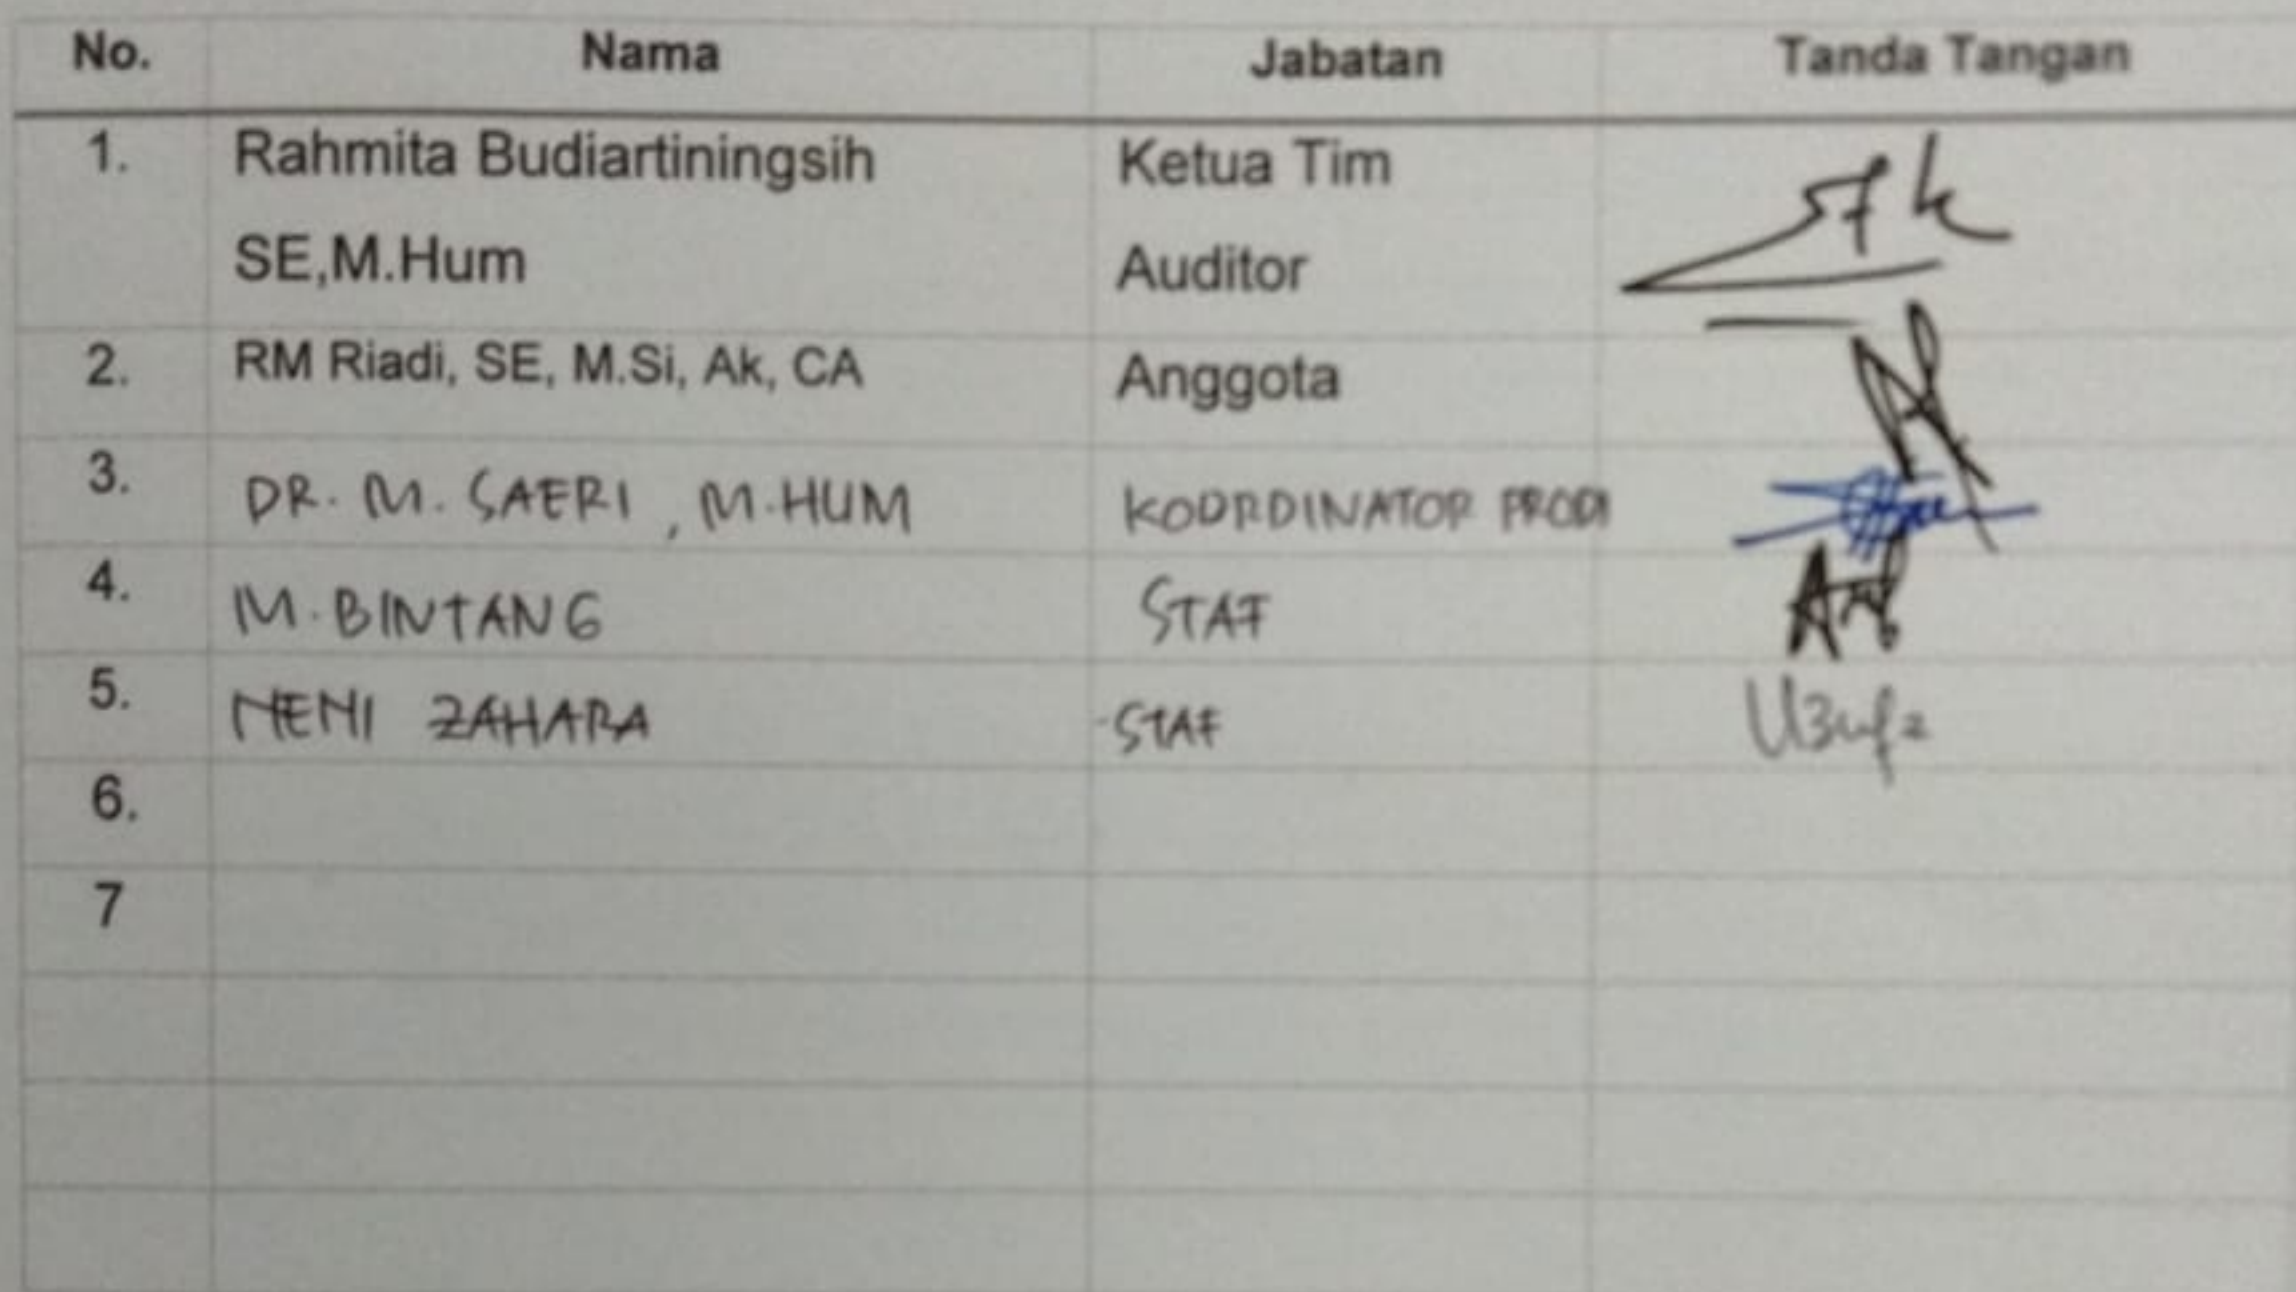 No. Nama Jabatan Tanda Tangan
1. Rahmita Budiartiningsih Ketua Tim
SE,M.Hum Auditor
2. RM Riadi, SE, M.Si, Ak, CA Anggota
3. DR. M. SAERI, M.HUM KOORDINATOR PRODI
4. M. BINTANG STAF
5. NENI ZAHARA STAF
6.
7